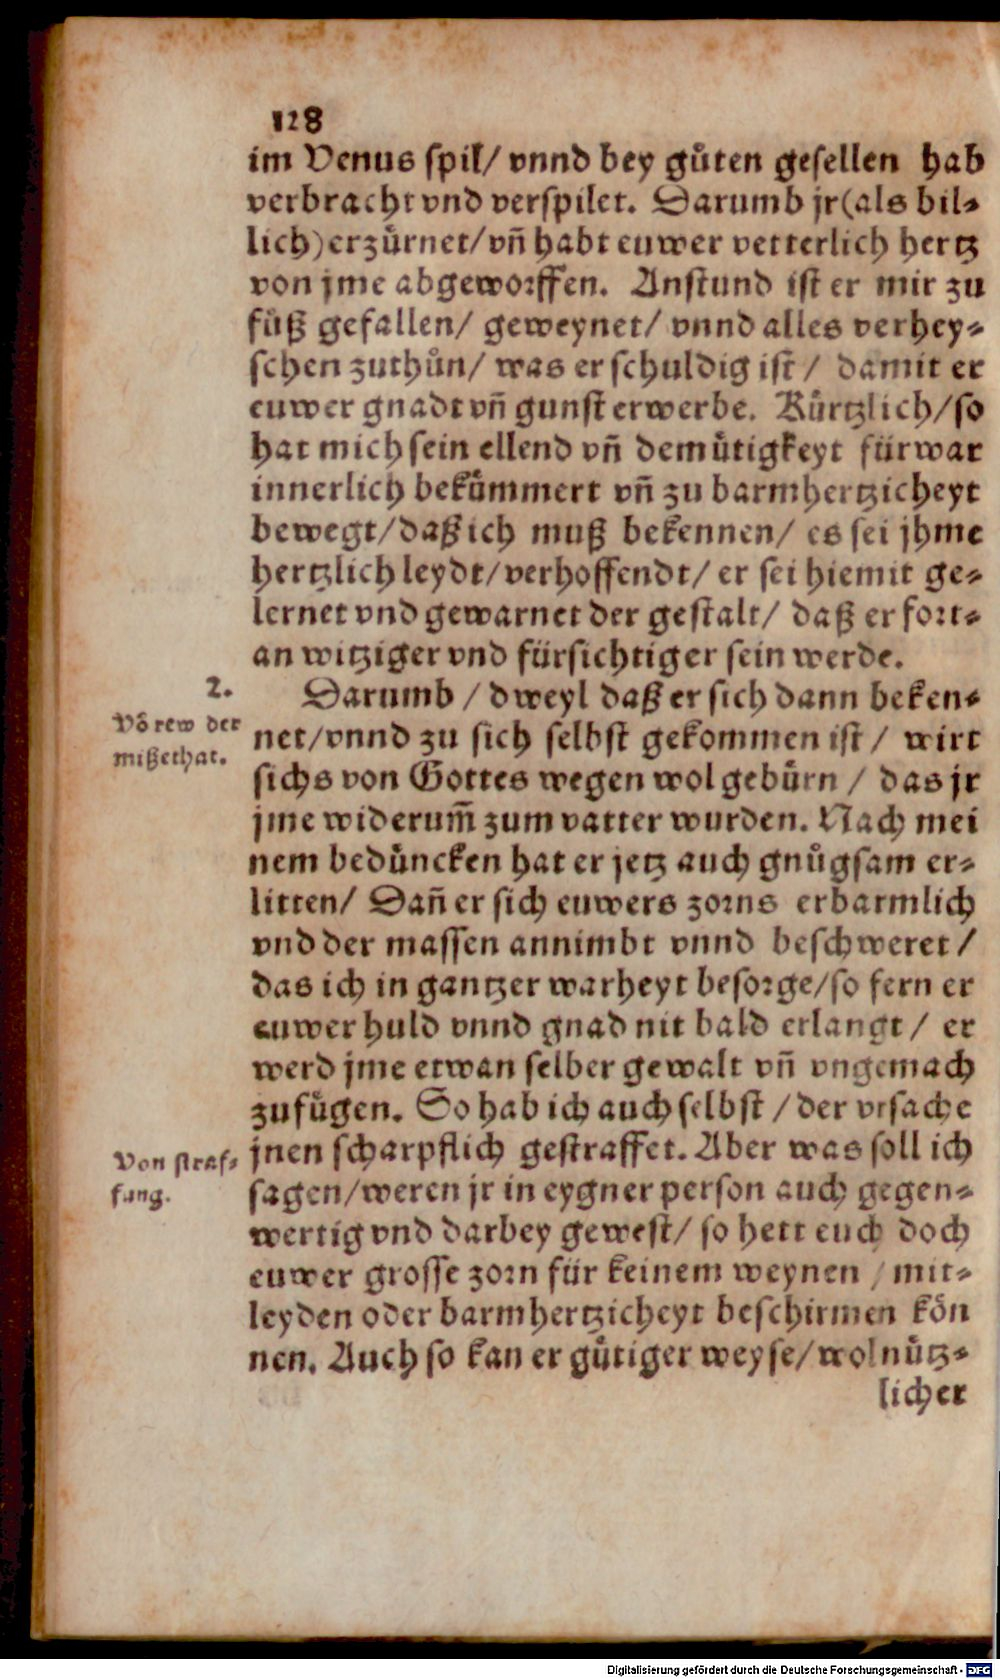 128
im Venus spil/ vnnd bey gůten gesellen hab
verbracht vnd verspilet. Darumb jr(als bil-
lich)erzürnet/vñ habt euwer vetterlich hertz
von jme abgeworffen. Anstund ist er mir zu
füß gefallen/ geweynet/ vnnd alles verhey-
schen zuthůn/ was er schuldig ist/ damit er
euwer gnadt vñ gunst erwerbe. Kürtzlich/so
hat mich sein ellend vñ demütigkeyt fürwar
innerlich bekümmert vñ zu barmhertzicheyt
bewegt/daß ich muß bekennen/ es sei jhme
hertzlich leydt/verhoffendt/ er sei hiemit ge-
lernet vnd gewarnet der gestalt/ daß er fort-
an witziger vnd fürsichtiger sein werde.
2.
Võ rew der
mißethat.
Darumb / dweyl daß er sich dann beken-
net/vnnd zu sich selbst gekommen ist/ wirt
sichs von Gottes wegen wol gebürn / das jr
jme widerum̃ zum vatter wurden. Nach mei
nem bedüncken hat er jetz auch gnůgsam er-
litten/ Dañ er sich euwers zorns erbarmlich
vnd der massen annimbt vnnd beschweret/
das ich in gantzer warheyt besorge/so fern er
euwer huld vnnd gnad nit bald erlangt/ er
werd jme etwan selber gewalt vñ vngemach
zufügen. So hab ich auch selbst / der vrsache
Von straf-
fung.
jnen scharpflich gestraffet. Aber was soll ich
sagen/weren jr in eygner person auch gegen-
wertig vnd darbey gewest/ so hett euch doch
euwer grosse zorn für keinem weynen / mit-
leyden oder barmhertzicheyt beschirmen kön
nen. Auch so kan er gütiger weyse/wol nütz-
licher
Digitalisierung gefördert durch die Deutsche Forschungsgemeinschaft - DFG